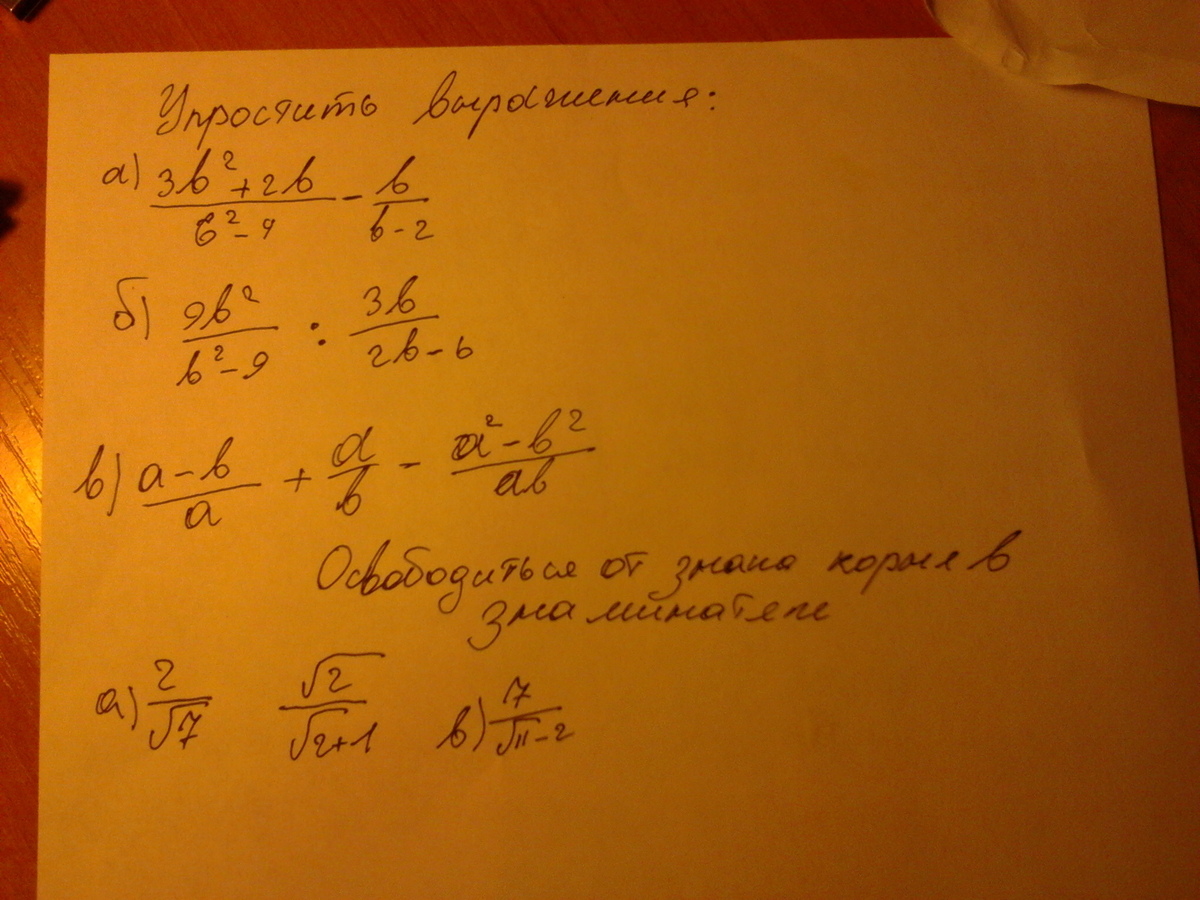 Упростить выражения:
а) (3b²+2b)/(b²-4) - b/(b-2)
б) 9b²/(b²-9) : 3b/(2b-6)
в) (a-b)/a + a/b - (a²-b²)/ab
Освободиться от знака корня в
знаминателе
а) 2/√7 √2/(√2+1) в) 7/(√11-2)